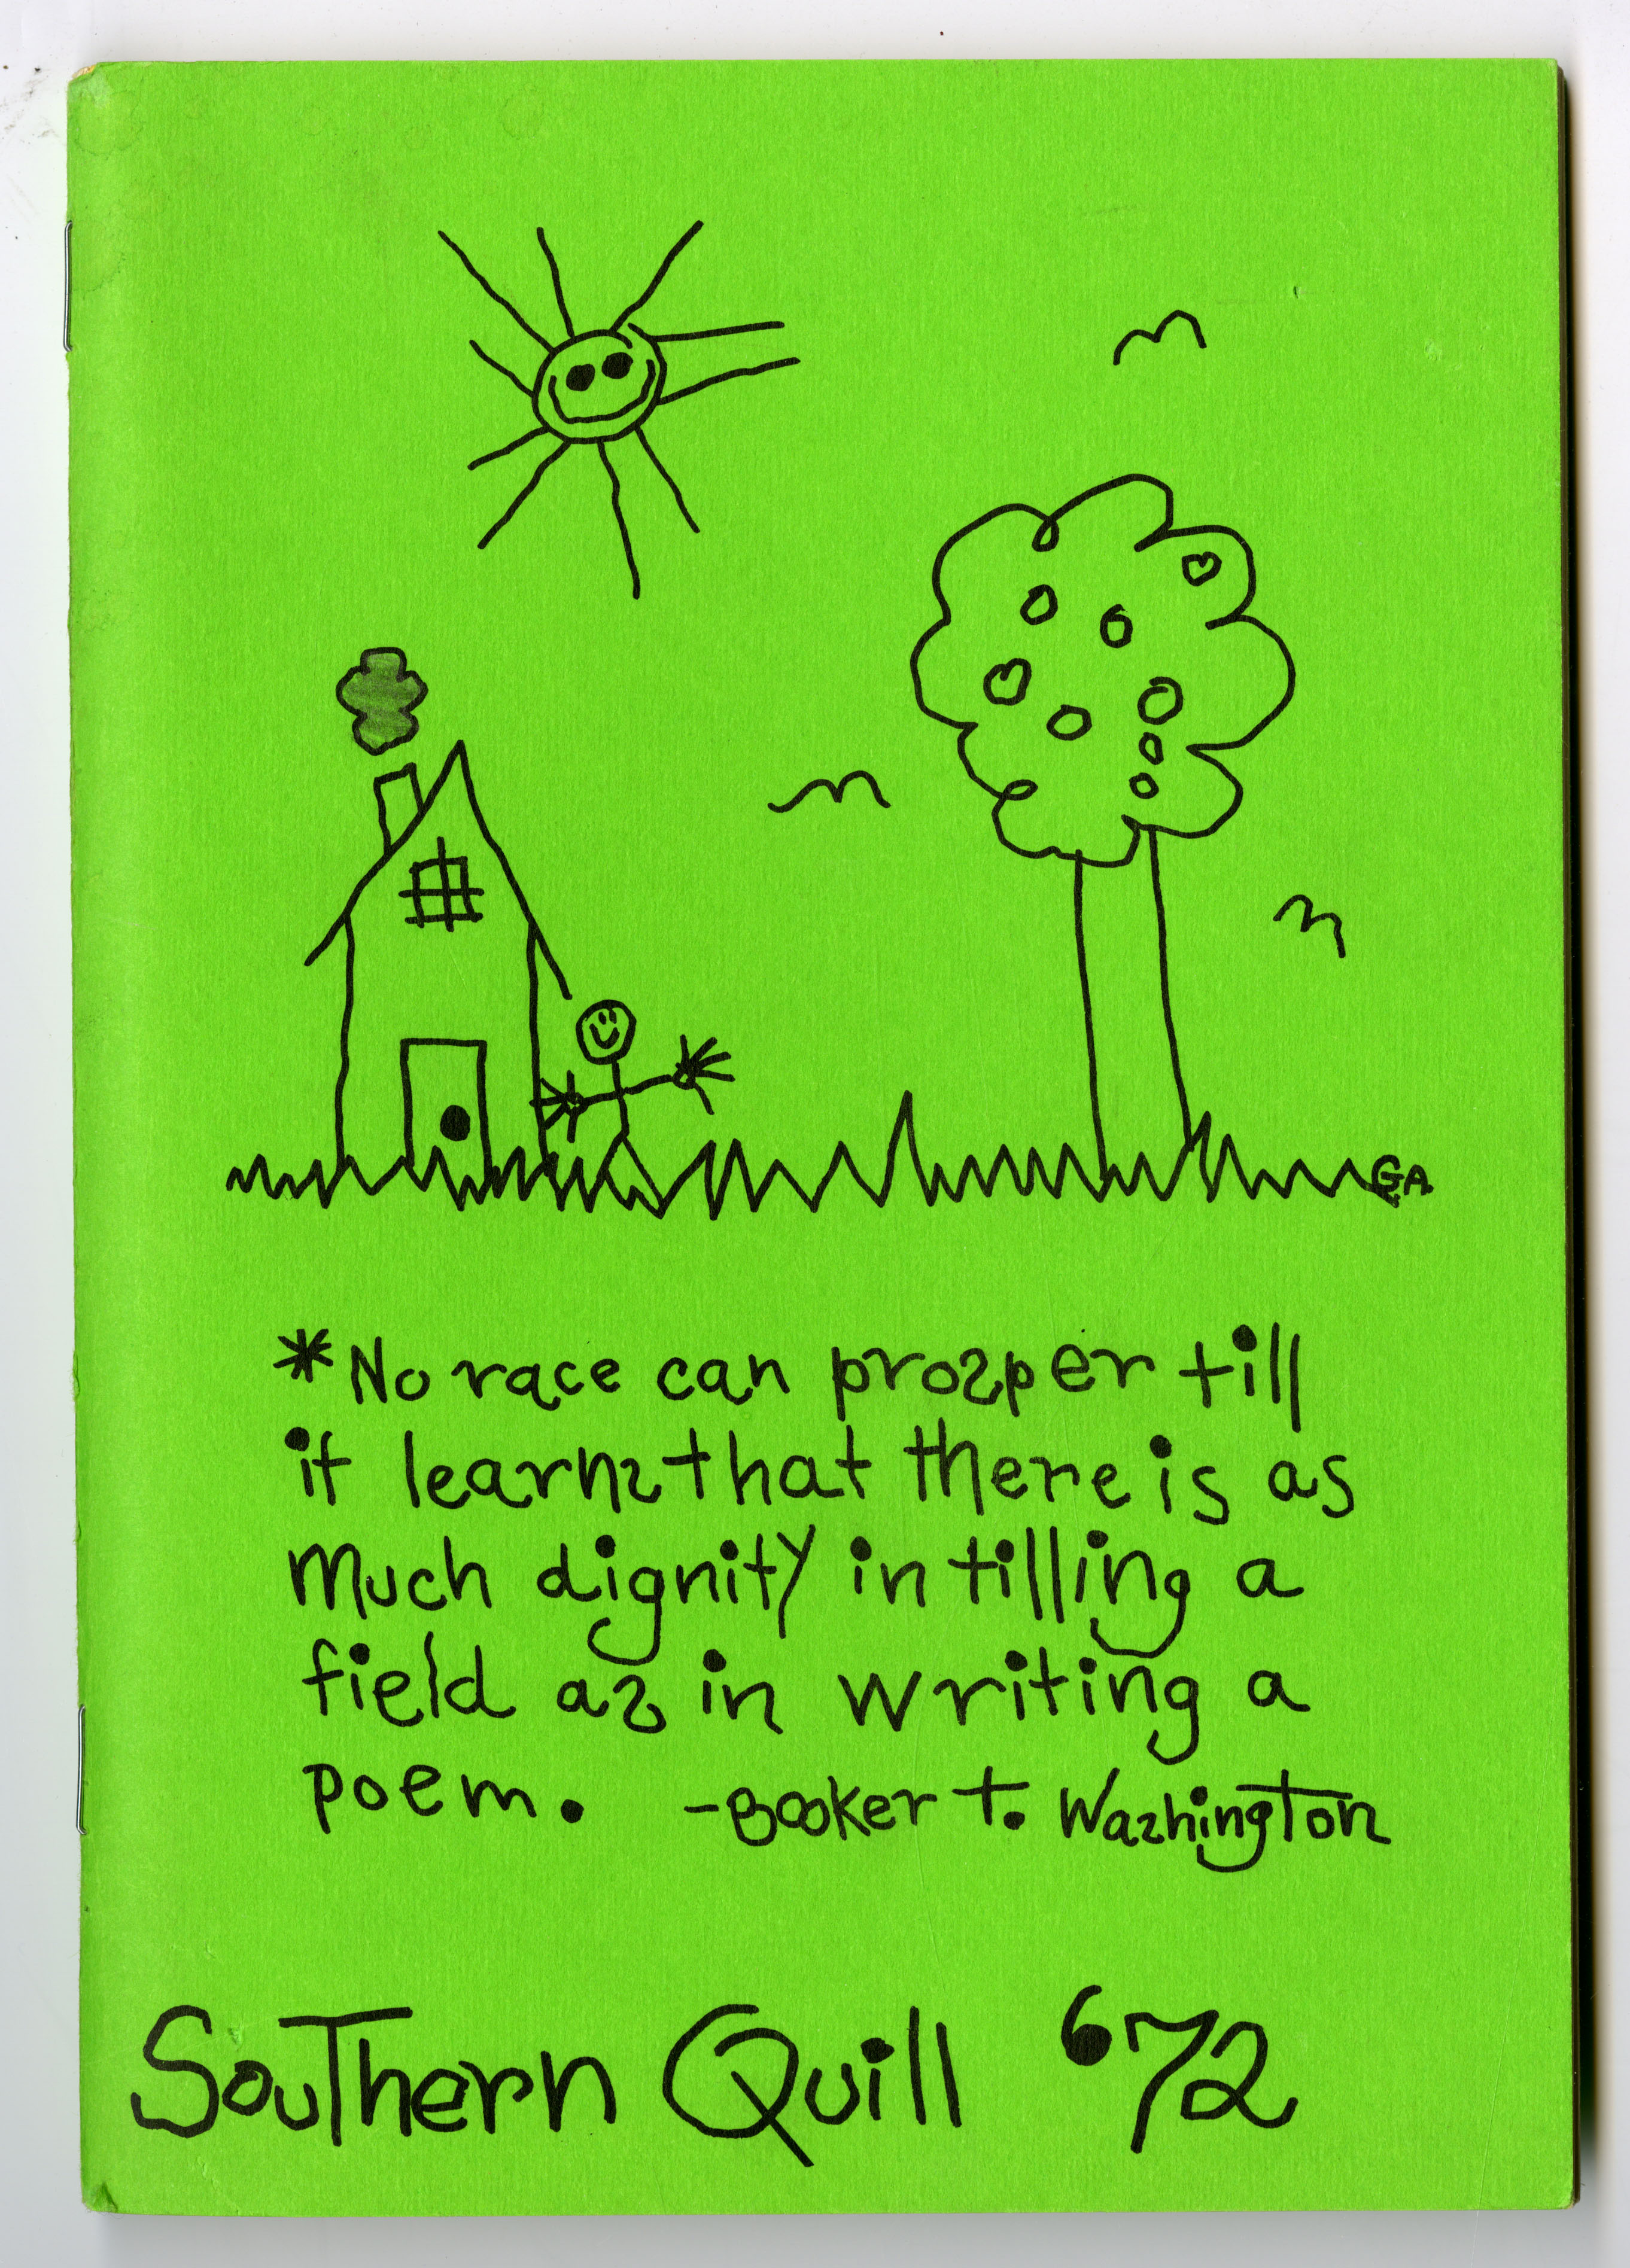 GA
*No race can prosper till
it learns that there is as
much dignity in tilling a
field as in writing a
poem. -Booker T. Washington
Southern Quill '72